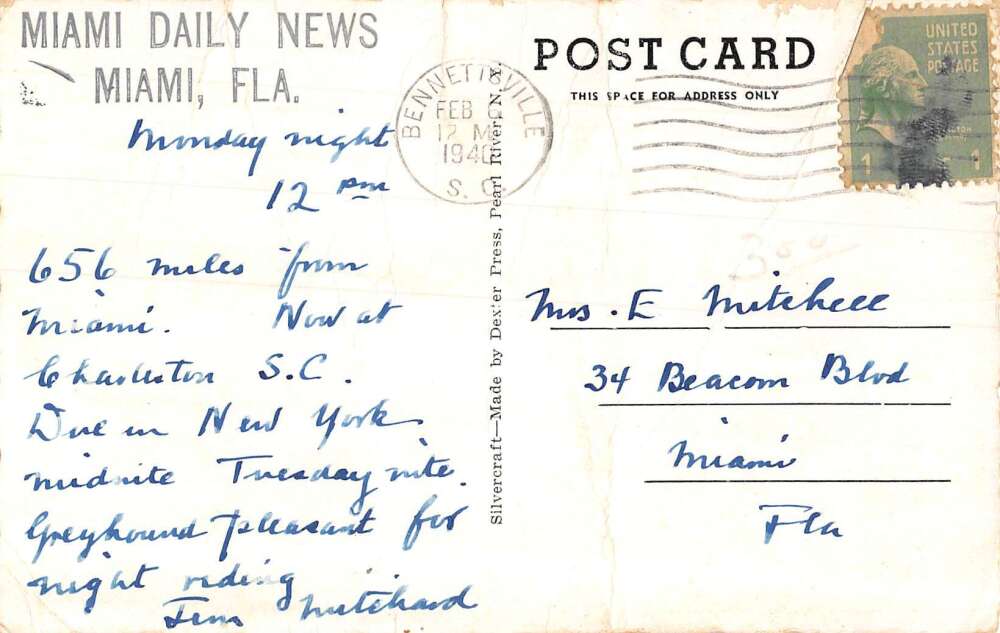 MIAMI DAILY NEWS
MIAMI, FLA.
Monday night
12 pm
656 miles from
Miami. Now at
Charleston S.C.
Due in New York
midnite Tuesday nite.
Greyhound pleasant for
night riding
Jim Mitchard
Silvercraft—Made by Dexter Press, Pearl River, N. Y.
POST CARD
THIS SPACE FOR ADDRESS ONLY
BENNETTSVILLE
FEB
12 M
1940
S. C.
UNITED
STATES
POSTAGE
1 1
300
Mrs. E Mitchell
34 Beacom Blvd
Miami
Fla